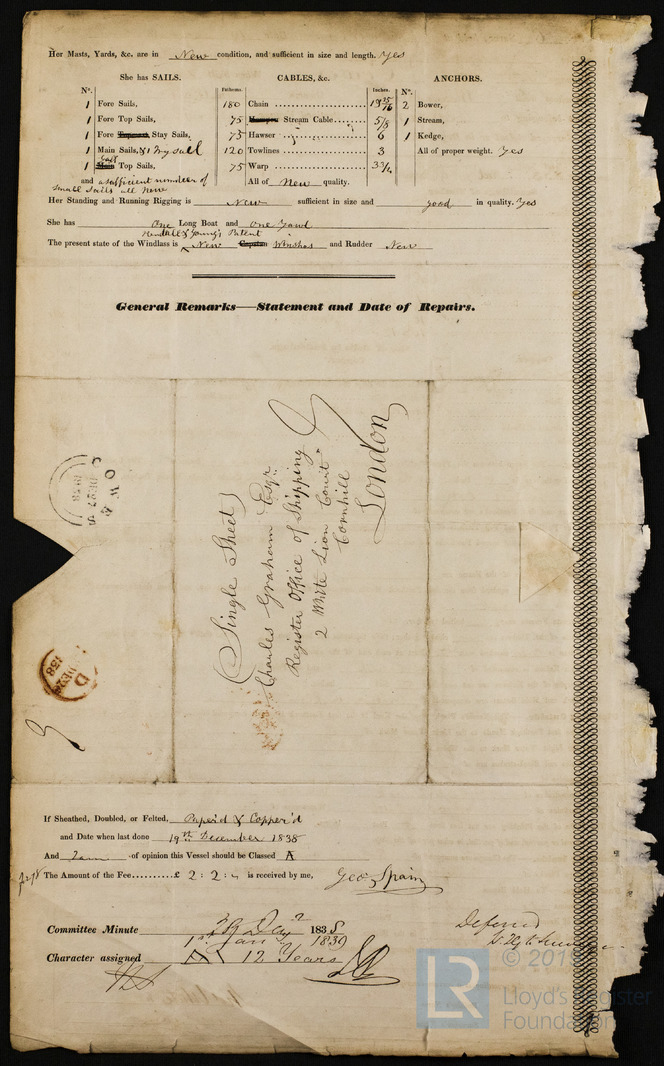 Her Masts, Yards, &c. are in New condition, and sufficient in size and length. Yes
She has SAILS.
CABLES, &c.
ANCHORS.
Nº.
Fathoms.
Inches.
Nº.
1 Fore Sails,
180 Chain
2 Bower,
1 Fore Top Sails,
75 Stream Cable 5/8
1 Stream,
1 Fore Stay Sails,
75 Hawser 6
1 Kedge,
1 Main Sails, & 1 Try sail
120 Towlines 3
All of proper weight. Yes
1 Top Sails,
75 Warp 3 3/4
and a sufficient number of
small sails all New
All of New quality.
Her Standing and Running Rigging is New sufficient in size and good in quality. Yes
She has One Long Boat and One Yawl
& Young's Patent
The present state of the Windlass is New and Rudder New
General Remarks—Statement and Date of Repairs.
(Single Sheet)
Charles Graham Esqr.
Register Office of Shipping
2 White Lion Court
Cornhill
London
COWES
DE 27
1838
D
DE 28
1838
If Sheathed, Doubled, or Felted, Paper'd & Copper'd
and Date when last done 19th December 1838
And I am of opinion this Vessel should be Classed A
The Amount of the Fee..........£ 2 : 2 : is received by me, Geo. Spain
Committee Minute 1838
1st Jany 1839
Character assigned A 12 Years
Deferred
LR
Lloyd's Register
Foundation